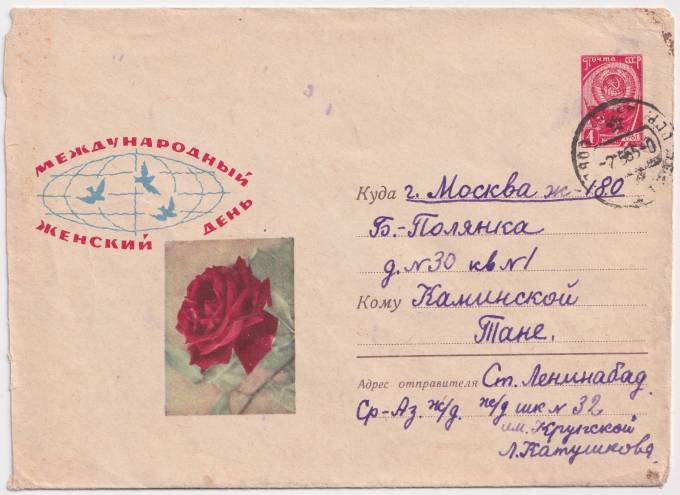 Почта СССР
МЕЖДУНАРОДНЫЙ
ЖЕНСКИЙ ДЕНЬ
Куда г. Москва ж-180
Б.-Полянка
д. № 30 кв № 1
Кому Каминской
Тане.
Адрес отправителя Ст. Ленинабад
Ср-Аз. ж/д. ж/д шк № 32
им. Крупской
Л. Катушкова